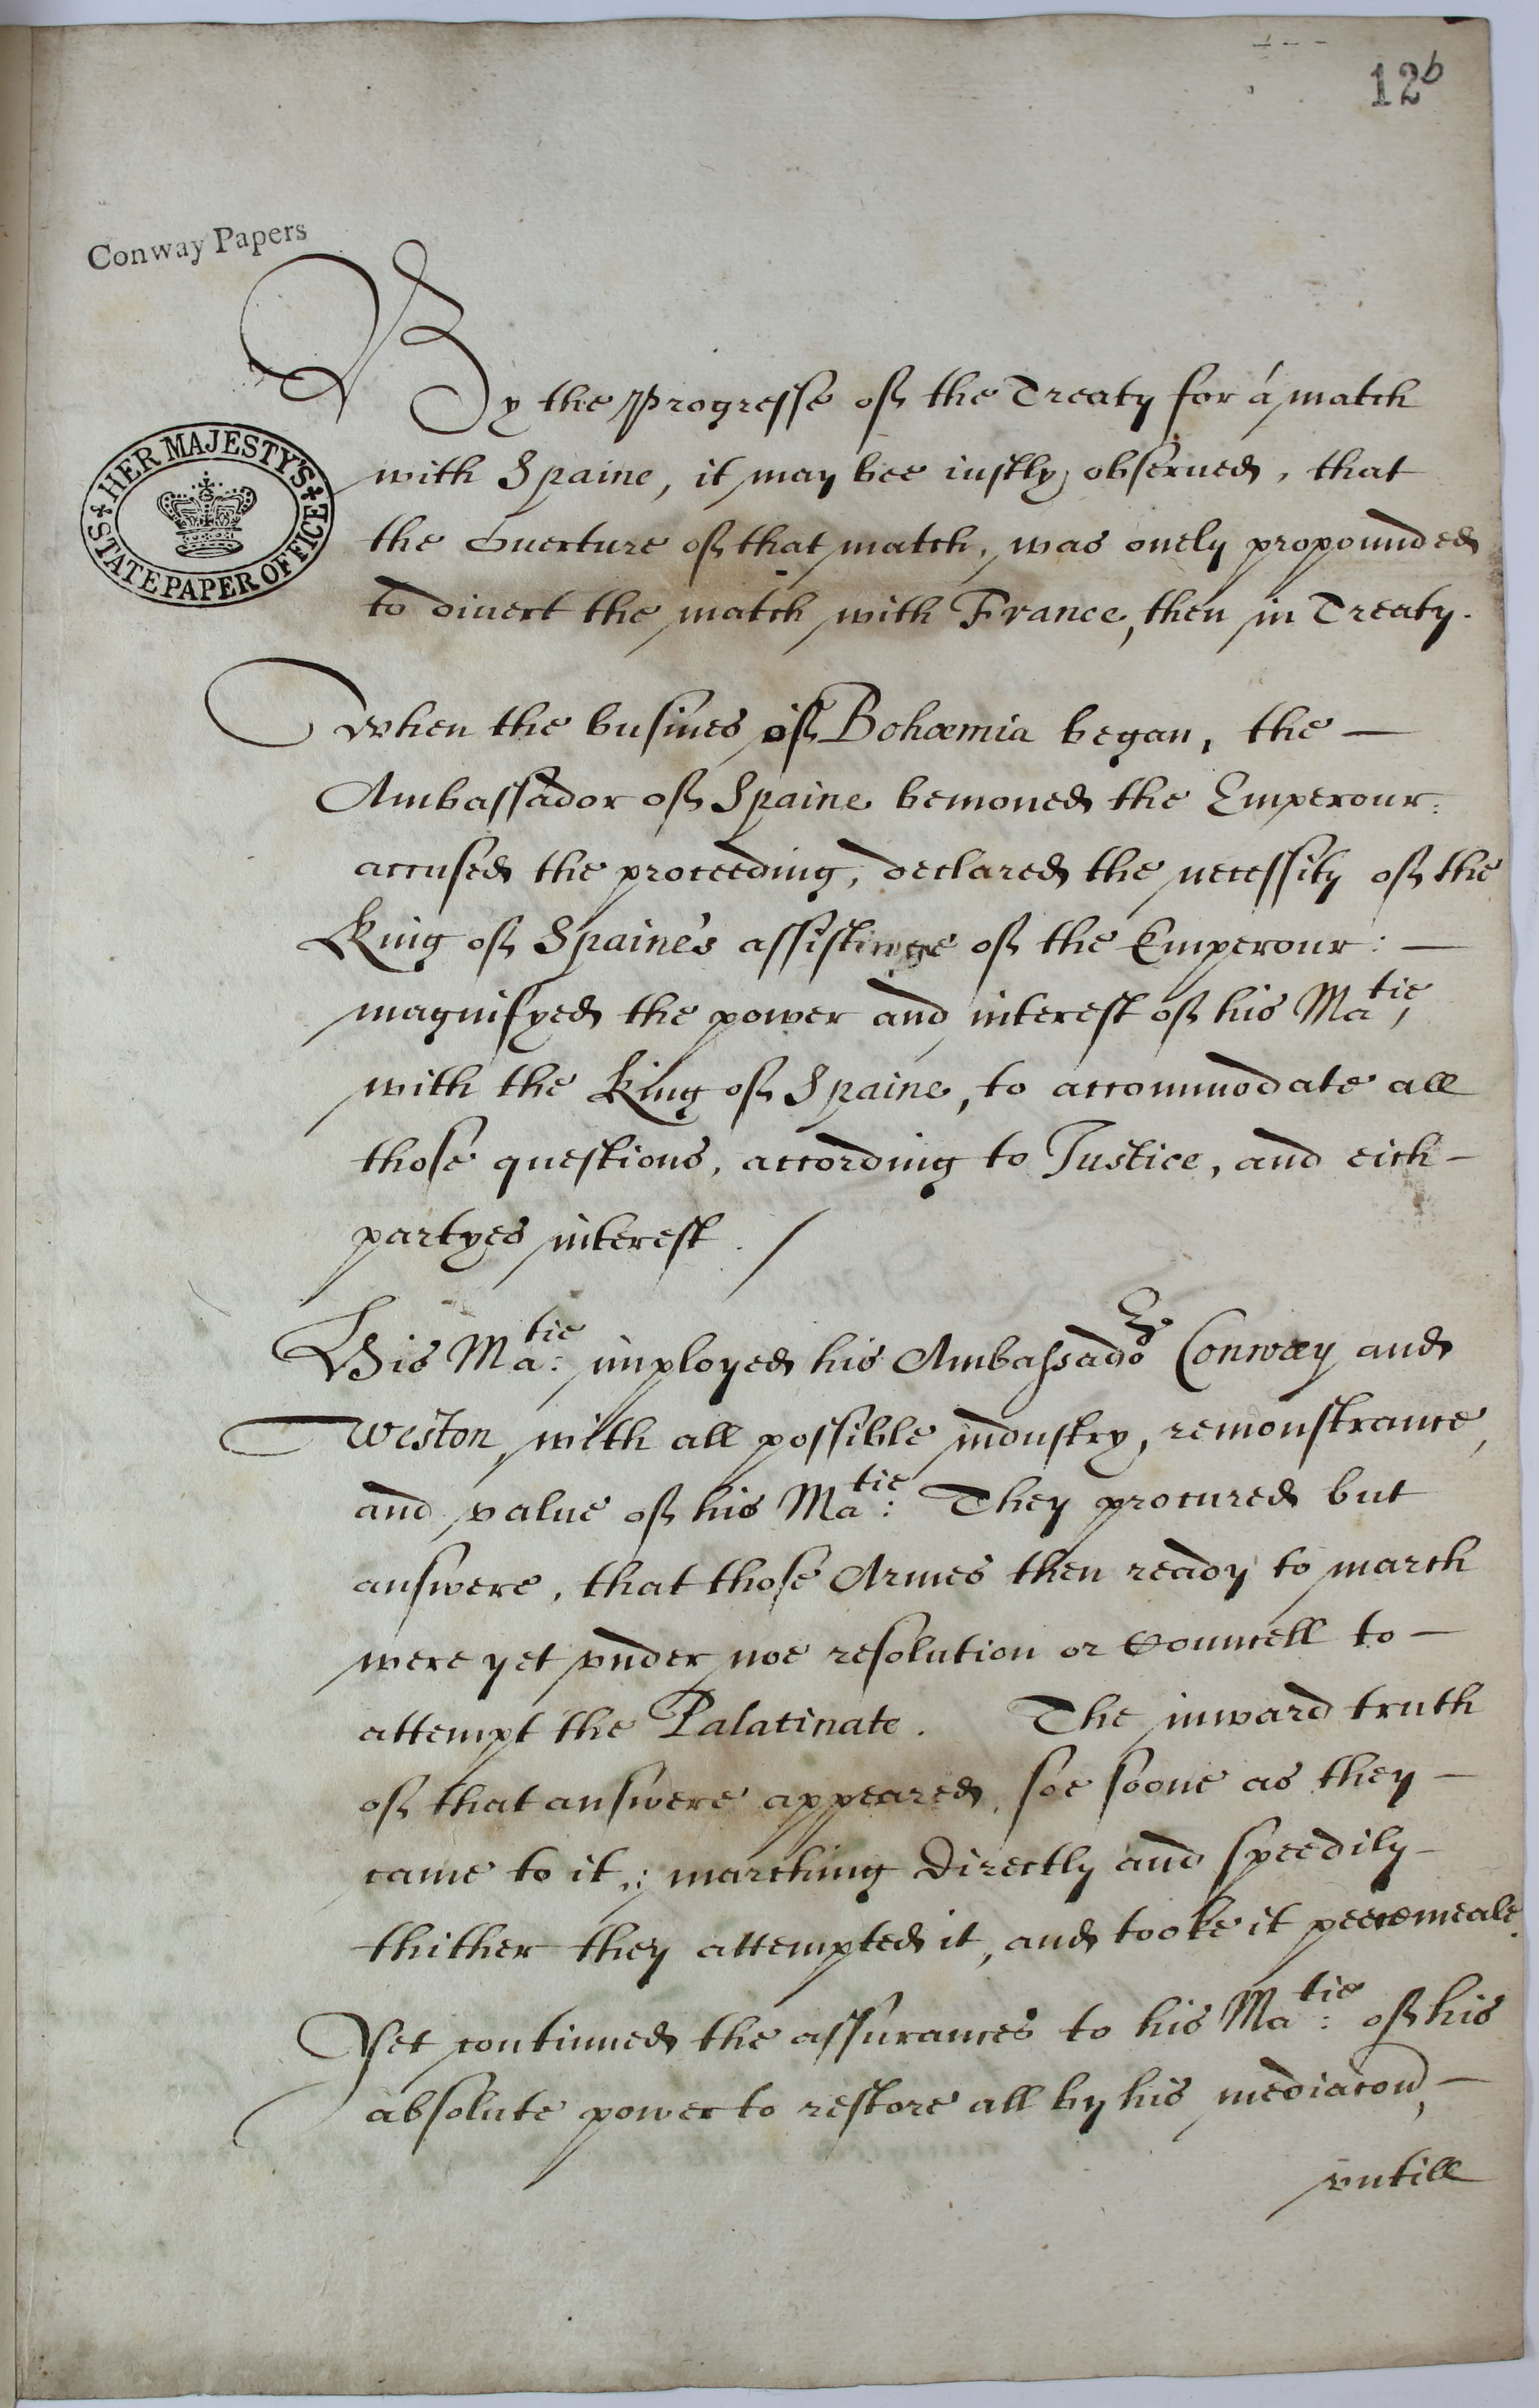 12b
Conway Papers
HER MAJESTY'S STATE PAPER OFFICE
By the Progresse of the Treaty for á match
with Spaine, it may bee iustly obserued, that
the Ouerture of that match, was onely propounded
to diuert the match with France, then in Treaty.
When the busines of Bohæmia began, the —
Ambassador of Spaine bemoned the Emperour:
accused the proceeding, declared the necessity of the
King of Spaine's assistance of the Emperour: —
magnifyed the power and interest of his Matie,
with the King of Spaine, to accommodate all
those questions, according to Iustice, and eich —
partyes interest. /
His Matie: imployed his Ambassadors Conway and
Weston, with all possible industry, remonstrance,
and value of his Matie: They procured but
answere, that those Armes then ready to march
were yet vnder noe resolution or Councell to —
attempt the Palatinate. The inward truth
of that answere appeared, soe soone as they —
came to it,: marching directly and speedily —
thither they attempted it, and tooke it peecemeale.
Yet continued the assurances to his Matie: of his
absolute power to restore all by his mediacon, —
vntill